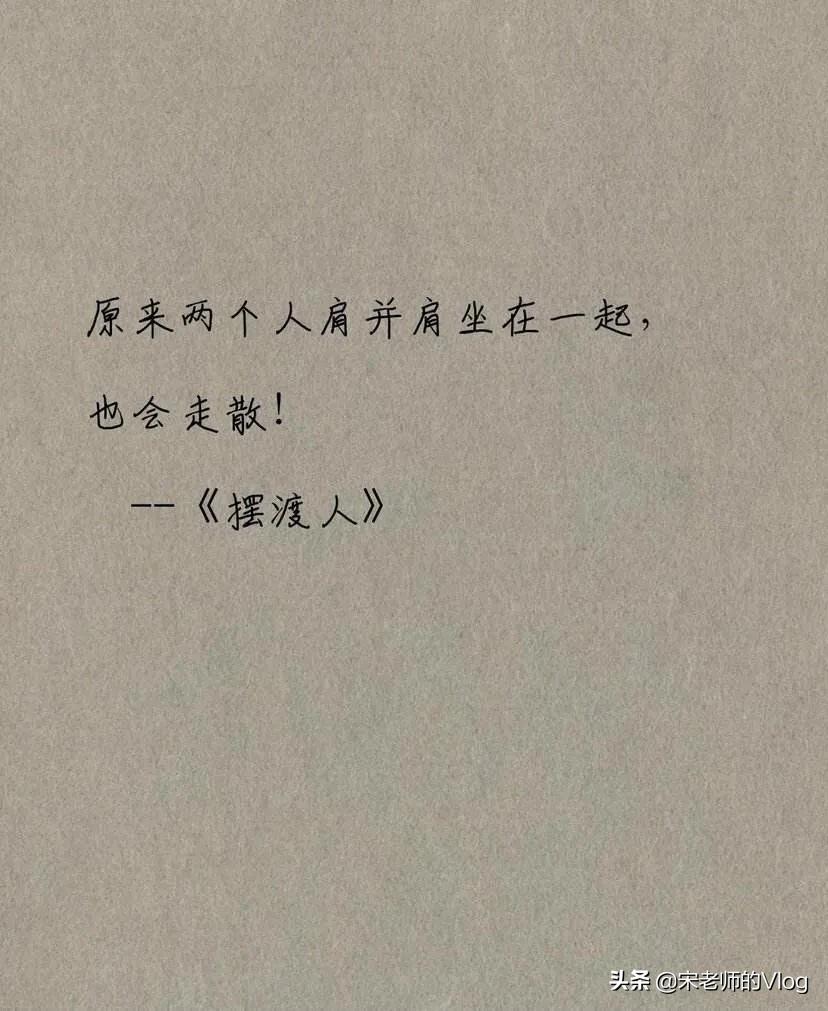 原来两个人肩并肩坐在一起，
也会走散！
--《摆渡人》
头条 @宋老师的Vlog